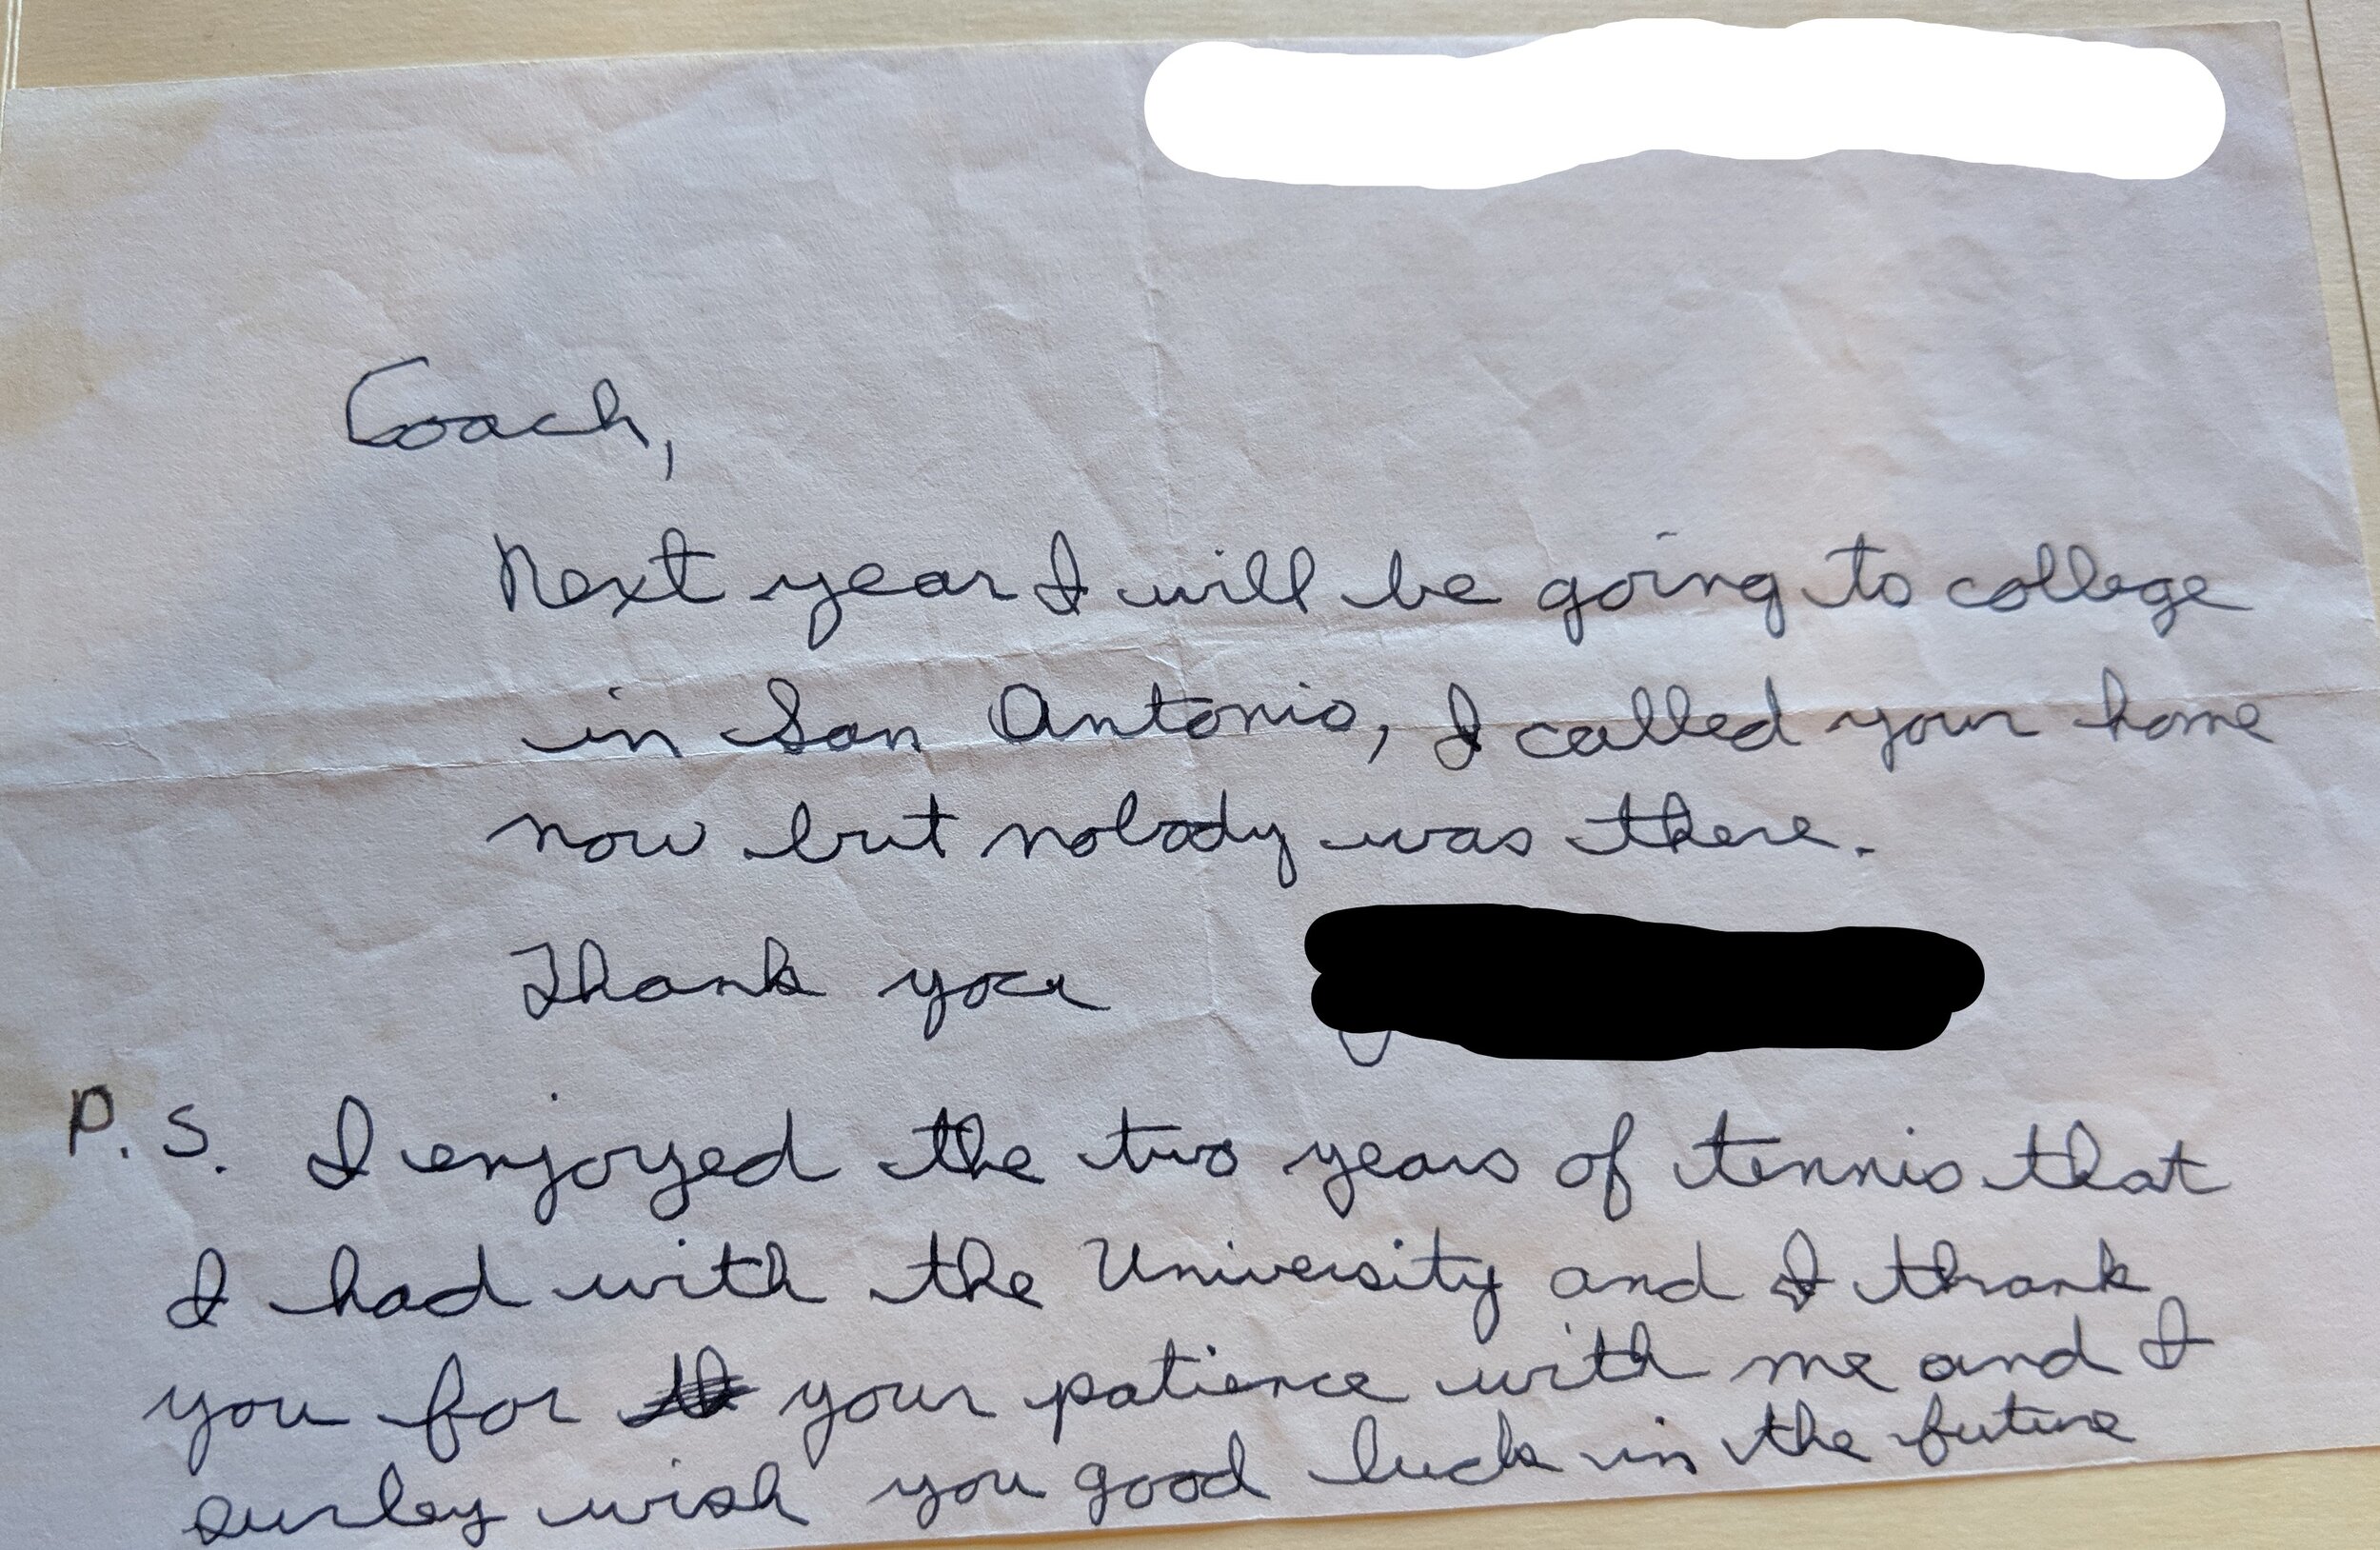 Coach,
Next year I will be going to college
in San Antonio, I called your home
now but nobody was there.
Thank you
P.S. I enjoyed the two years of tennis that
I had with the University and I thank
you for your patience with me and I
surley wish you good luck in the future